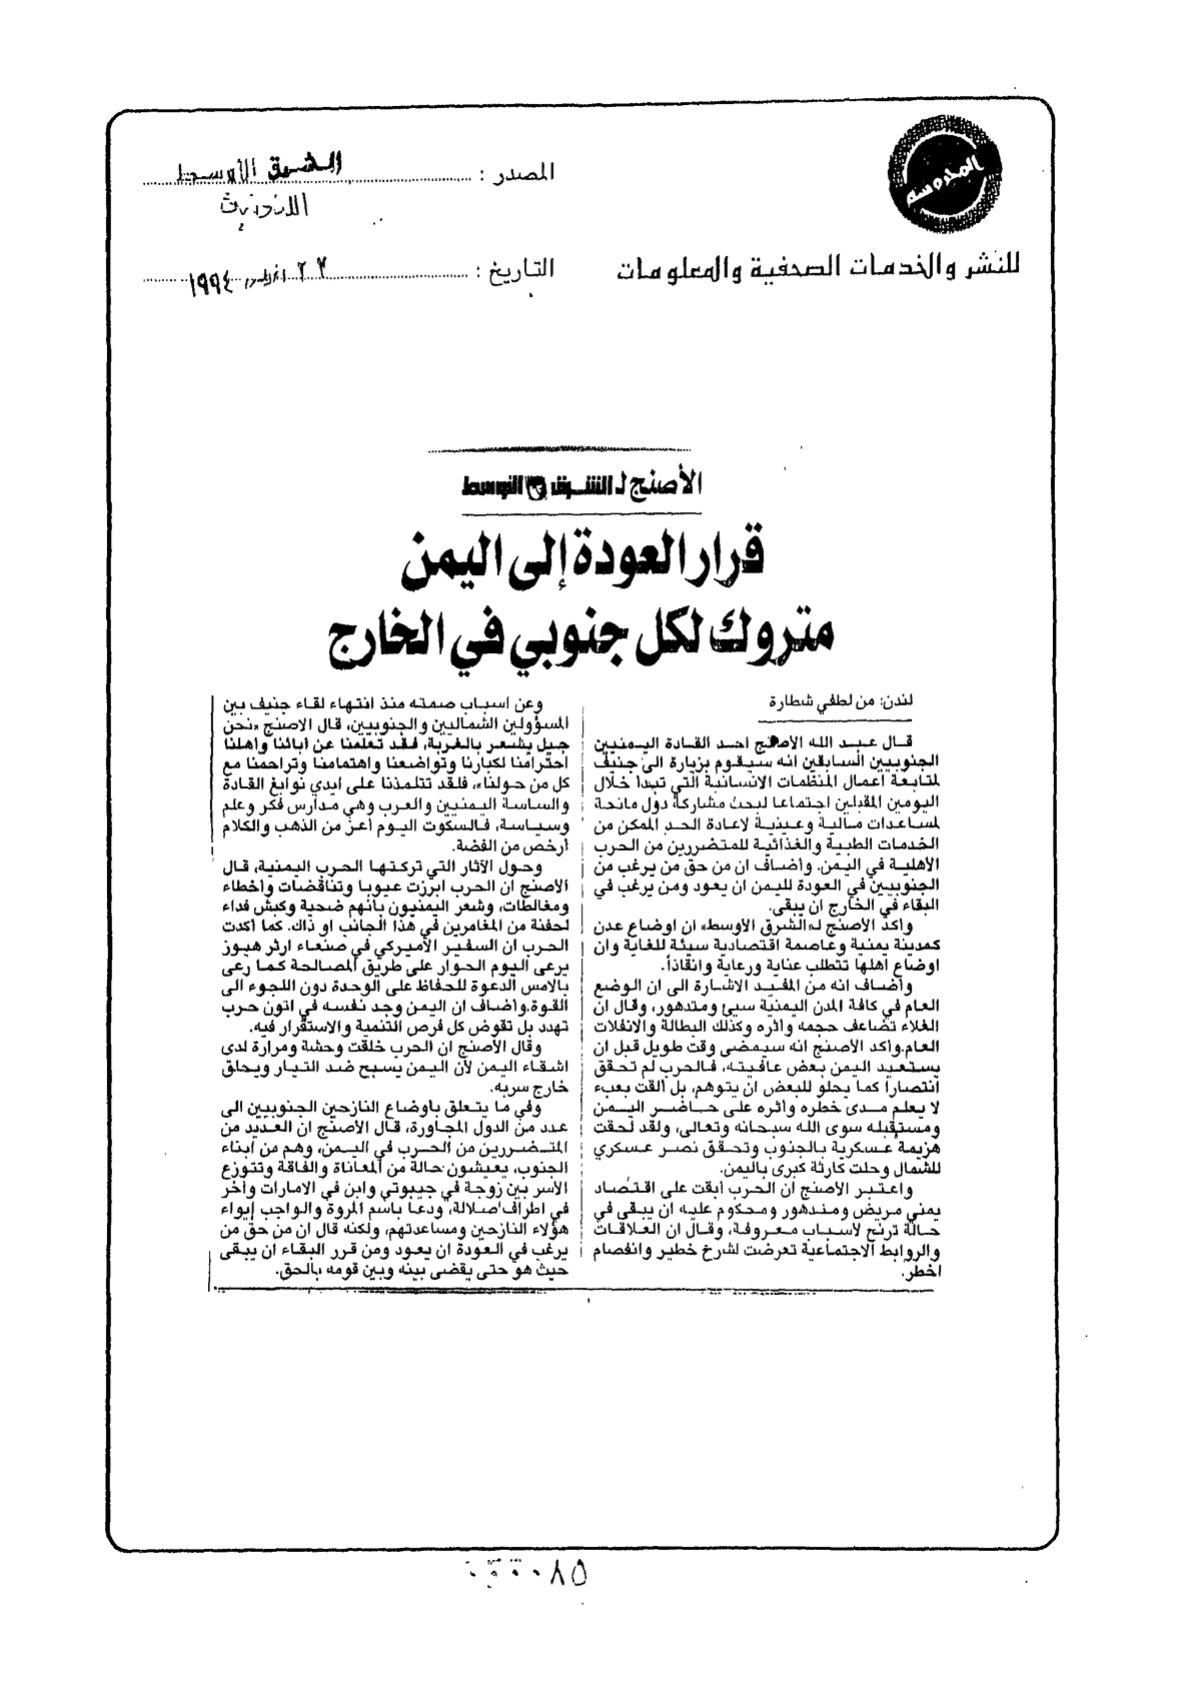 المحروسة
للنشر والخدمات الصحفية والمعلومات
المصدر : الشرق الأوسط
اللندنية
التاريخ : ١٩٩٤
الأصنج لـ الشرق الأوسط
قرار العودة إلى اليمن
متروك لكل جنوبي في الخارج
لندن: من لطفي شطارة
قال عبد الله الأصنج احد القادة اليمنيين
الجنوبيين السابقين انه سيقوم بزيارة الى جنيف
لمتابعة أعمال المنظمات الانسانية التي تبدأ خلال
اليومين المقبلين اجتماعا لبحث مشاركة دول مانحة
لمساعدات مالية وعينية لاعادة الحد الممكن من
الخدمات الطبية والغذائية للمتضررين من الحرب
الأهلية في اليمن. وأضاف ان من حق من يرغب من
الجنوبيين في العودة لليمن ان يعود ومن يرغب في
البقاء في الخارج ان يبقى.
واكد الأصنج لـ«الشرق الأوسط» ان اوضاع عدن
كمدينة يمنية وعاصمة اقتصادية سيئة للغاية وان
اوضاع اهلها تتطلب عناية ورعاية وانقاذاً.
وأضاف انه من المفيد الاشارة الى ان الوضع
العام في كافة المدن اليمنية سيئ ومتدهور، وقال ان
الغلاء تضاعف حجمه واثره وكذلك البطالة والانفلات
العام.واكد الأصنج انه سيمضي وقت طويل قبل ان
يستعيد اليمن بعض عافيته، فالحرب لم تحقق
انتصاراً كما يحلو للبعض ان يتوهم، بل القت بعبء
لا يعلم مدى خطره واثره على حاضر اليمن
ومستقبله سوى الله سبحانه وتعالى، ولقد لحقت
هزيمة عسكرية بالجنوب وتحقق نصر عسكري
للشمال وحلت كارثة كبرى باليمن.
واعتبر الأصنج ان الحرب أبقت على اقتصاد
يمني مريض ومتدهور ومحكوم عليه ان يبقى في
حالة ترنح لأسباب معروفة، وقال ان العلاقات
والروابط الاجتماعية تعرضت لشرخ خطير وانفصام
اخطر.
وعن اسباب صمته منذ انتهاء لقاء جنيف بين
المسؤولين الشماليين والجنوبيين، قال الأصنج «نحن
جيل يشعر بالغربة، فقد تعلمنا عن أبائنا وأهلنا
احترامنا لكبارنا وتواضعنا واهتمامنا وتراحمنا مع
كل من حولنا»، فلقد تتلمذنا على ايدي نوابغ القادة
والساسة اليمنيين والعرب وهي مدارس فكر وعلم
وسياسة، فالسكوت اليوم أعز من الذهب والكلام
أرخص من الفضة.
وحول الآثار التي تركتها الحرب اليمنية، قال
الأصنج ان الحرب ابرزت عيوبا وتناقضات وأخطاء
ومغالطات، وشعر اليمنيون بأنهم ضحية وكبش فداء
لحفنة من المغامرين في هذا الجانب او ذاك. كما أكدت
الحرب ان السفير الأميركي في صنعاء ارثر هيوز
يرعى اليوم الحوار على طريق المصالحة كما رعى
بالأمس الدعوة للحفاظ على الوحدة دون اللجوء الى
القوة.وأضاف ان اليمن وجد نفسه في اتون حرب
تهدد بل تقوض كل فرص التنمية والاستقرار فيه.
وقال الأصنج ان الحرب خلقت وحشة ومرارة لدى
اشقاء اليمن لأن اليمن يسبح ضد التيار ويحلق
خارج سربه.
وفي ما يتعلق باوضاع النازحين الجنوبيين الى
عدد من الدول المجاورة، قال الأصنج ان العديد من
المتضررين من الحرب في اليمن، وهم من أبناء
الجنوب، يعيشون حالة من المعاناة والفاقة وتتوزع
الأسر بين زوجة في جيبوتي وابن في الامارات وآخر
في اطراف صلالة، ودعا باسم المروة والواجب إيواء
هؤلاء النازحين ومساعدتهم، ولكنه قال ان من حق من
يرغب في العودة ان يعود ومن قرر البقاء ان يبقى
حيث هو حتى يقضى بينه وبين قومه بالحق.